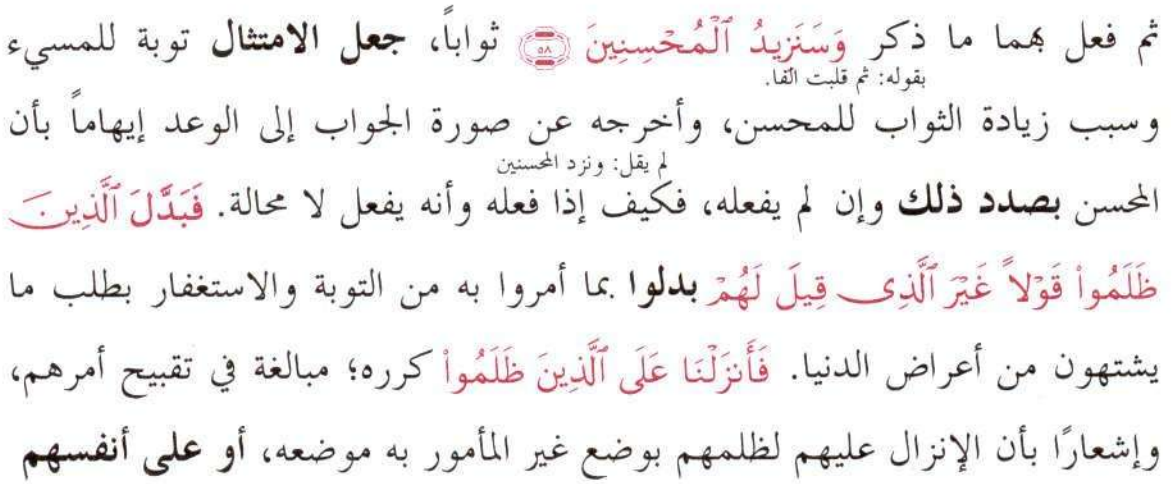 ثم فعل بهما ما ذكر وَسَنَزِيدُ ٱلْمُحْسِنِينَ ۝٥٨ ثواباً، جعل الامتثال توبة للمسيء
بقوله: ثم قلبت ألفا.
وسبب زيادة الثواب للمحسن، وأخرجه عن صورة الجواب إلى الوعد إيهاماً بأن
لم يقل: ونزد المحسنين
المحسن بصدد ذلك وإن لم يفعله، فكيف إذا فعله وأنه يفعل لا محالة. فَبَدَّلَ ٱلَّذِينَ
ظَلَمُوا۟ قَوْلاً غَيْرَ ٱلَّذِى قِيلَ لَهُمْ بدلوا بما أمروا به من التوبة والاستغفار بطلب ما
يشتهون من أعراض الدنيا. فَأَنزَلْنَا عَلَى ٱلَّذِينَ ظَلَمُوا۟ كرره؛ مبالغة في تقبيح أمرهم،
وإشعارًا بأن الإنزال عليهم لظلمهم بوضع غير المأمور به موضعه، أو على أنفسهم